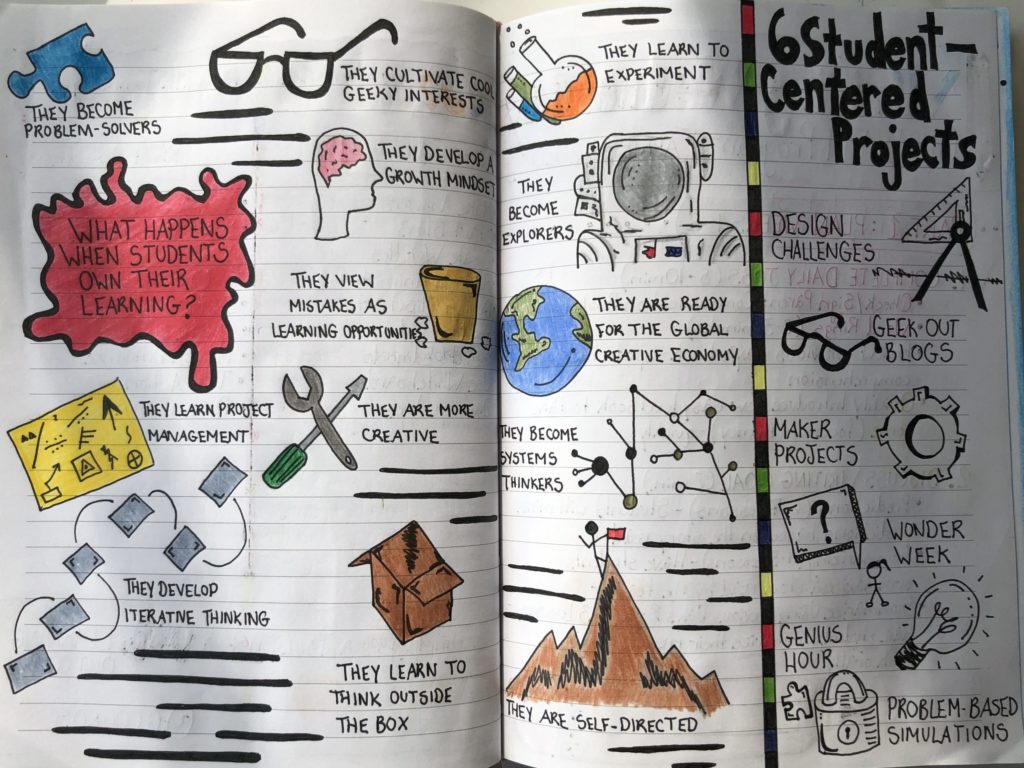 THEY BECOME
PROBLEM-SOLVERS
THEY CULTIVATE COOL
GEEKY INTERESTS
THEY DEVELOP A
GROWTH MINDSET
WHAT HAPPENS
WHEN STUDENTS
OWN THEIR
LEARNING?
THEY VIEW
MISTAKES AS
LEARNING OPPORTUNITIES
THEY LEARN PROJECT
MANAGEMENT
THEY ARE MORE
CREATIVE
THEY DEVELOP
ITERATIVE THINKING
THEY LEARN TO
THINK OUTSIDE
THE BOX
THEY LEARN TO
EXPERIMENT
THEY
BECOME
EXPLORERS
THEY ARE READY
FOR THE GLOBAL
CREATIVE ECONOMY
THEY BECOME
SYSTEMS
THINKERS
THEY ARE SELF-DIRECTED
6 Student-
Centered
Projects
DESIGN
CHALLENGES
GEEK OUT
BLOGS
MAKER
PROJECTS
?
WONDER
WEEK
GENIUS
HOUR
PROBLEM-BASED
SIMULATIONS